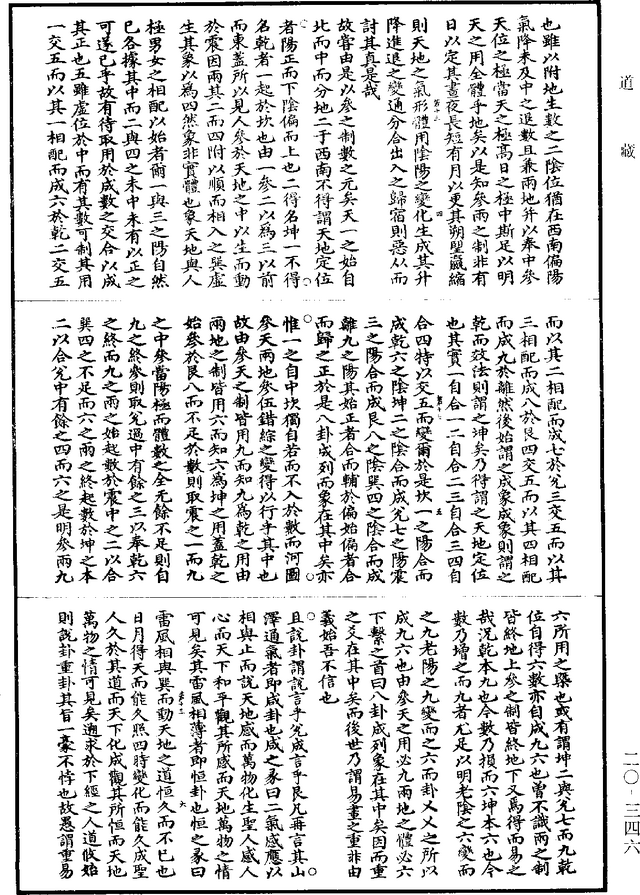 道藏
也雖以附地生數之二陰位猶在西南偏陽
氣降未及中之退數且兼兩地并以奉中參
天位之極當天之極高日之極中斯足以明
天之用全體乎地矣以是知參兩之制非有
日以定其晝夜長短有月以更其朔朢嬴縮
則天地之氣形體用陰陽之變化生成其升
降進退之變通分合出入之歸宿則惡从而
討其真是哉
故嘗由是以參之制數之元矣天一之始自
北而中而分地二于西南不得謂天地定位
者陽正而下陰偏而上也二得名坤一不得
名乾者一起於坎也由一參二以為三以前
而東蓋所以見人參於天地之中以生而動
於震因兩其二而四附以順而相入之巽虛
生其象以為四然象非實體也象天地與人
極男女之相配以始者爾一與三之陽自然
已各據其中而二與四之未中未有以正之
可遂已乎故有待取用於成數之交合以成
其正也五雖虛位於中而有其數可制其用
一交五而以其一相配而成六於乾二交五
而以其二相配而成七於兊三交五而以其
三相配而成八於艮四交五而以其四相配
而成九於離然後始謂之成象成象則謂之
乾而效法則謂之坤矣乃得謂之天地定位
也其實一自合一二自合二三自合三四自
合四特以交五而變爾於是坎一之陽合而
成乾六之陰坤二之陰合而成兊七之陽震
三之陽合而成艮八之陰巽四之陰合而成
離九之陽其始正者合而輔於偏始偏者合
而歸之正於是八卦成列而象在其中矣亦
惟一之自中坎獨自若而不入於數而河圖
參天兩地參伍錯綜之變得以行乎其中也
故由參天之制皆用九而知九為乾之用由
兩地之制皆用六而知六為坤之用蓋乾之
始參於艮八而不足於數則取震之一而九
之中參當陽極而體數之全无餘不足則自
九之終參則取兊過中有餘之三以奉乾六
之終而九之兩之始起數於震中之二以合
巽四之不足而六之兩之終起數於坤之本
二以合兊中有餘之四而六之是明參兩九
六所用之槩也或有謂坤二與兊七而九乾
位自得六數亦自成九六也曾不識兩之制
皆終地上參之制皆終地下又焉得而易之
哉況乾本九也今數乃損而六坤本六也今
數乃增之而九者尤足以明老陰之六變而
之九老陽之九變而之六而卦乂乂之所以
成九六也由參天之用必九兩地之體必六
下繫之首曰八卦成列象在其中矣因而重
之爻在其中矣而後世乃謂易畫之重非由
羲始吾不信也
且說卦謂說言乎兊成言乎艮凡再言其山
澤通氣者即咸卦也咸之彖曰二氣感應以
相與止而說天地感而萬物化生聖人感人
心而天下和平觀其所感而天地萬物之情
可見矣其雷風相薄者即恒卦也恒之彖曰
雷風相與巽而動天地之道恒久而不已也
日月得天而能久照四時變化而能久成聖
人久於其道而天下化成觀其所恒而天地
萬物之情可見矣遡求於下經之人道攸始
則說卦重卦其旨一豪不悖也故愚謂重易
二〇-三四六